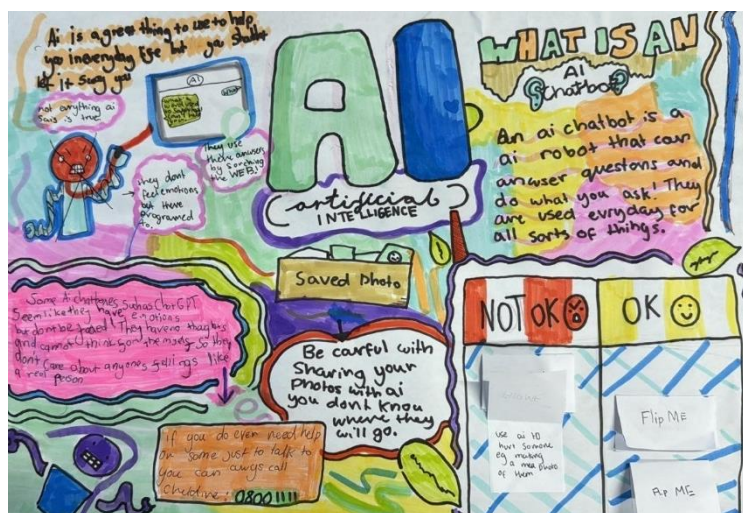 Ai is a great thing to use to help
you in everyday life but you shouldnt
let it sway you
not anything ai
sais is true
AI
they dont
feel emotions
but there
programed
to.
They use
there answers
by serching
the WEB!
AI
artificial
INTELLIGENCE
WHAT IS AN
AI
Chatbot?
An ai chatbot is a
ai robot that can
answer questons and
do what you ask! They
are used evryday for
all sorts of things.
Some Ai chatbots such as ChatGPT
Seem like they have emotions
but dont be fooled! They have no thoughts
and cannot think for themselves so they
dont care about anyones feelings like
a real person
Saved Photo
Be carful with
Sharing your
Photos with ai
you dont know
where they
will go.
if you do even need help
or some just to talk to
you can always call
childline: 0800 1111
NOT OK
OK
use ai to
hurt someone
eg making
a mean photo
of them
Flip ME
Flip ME